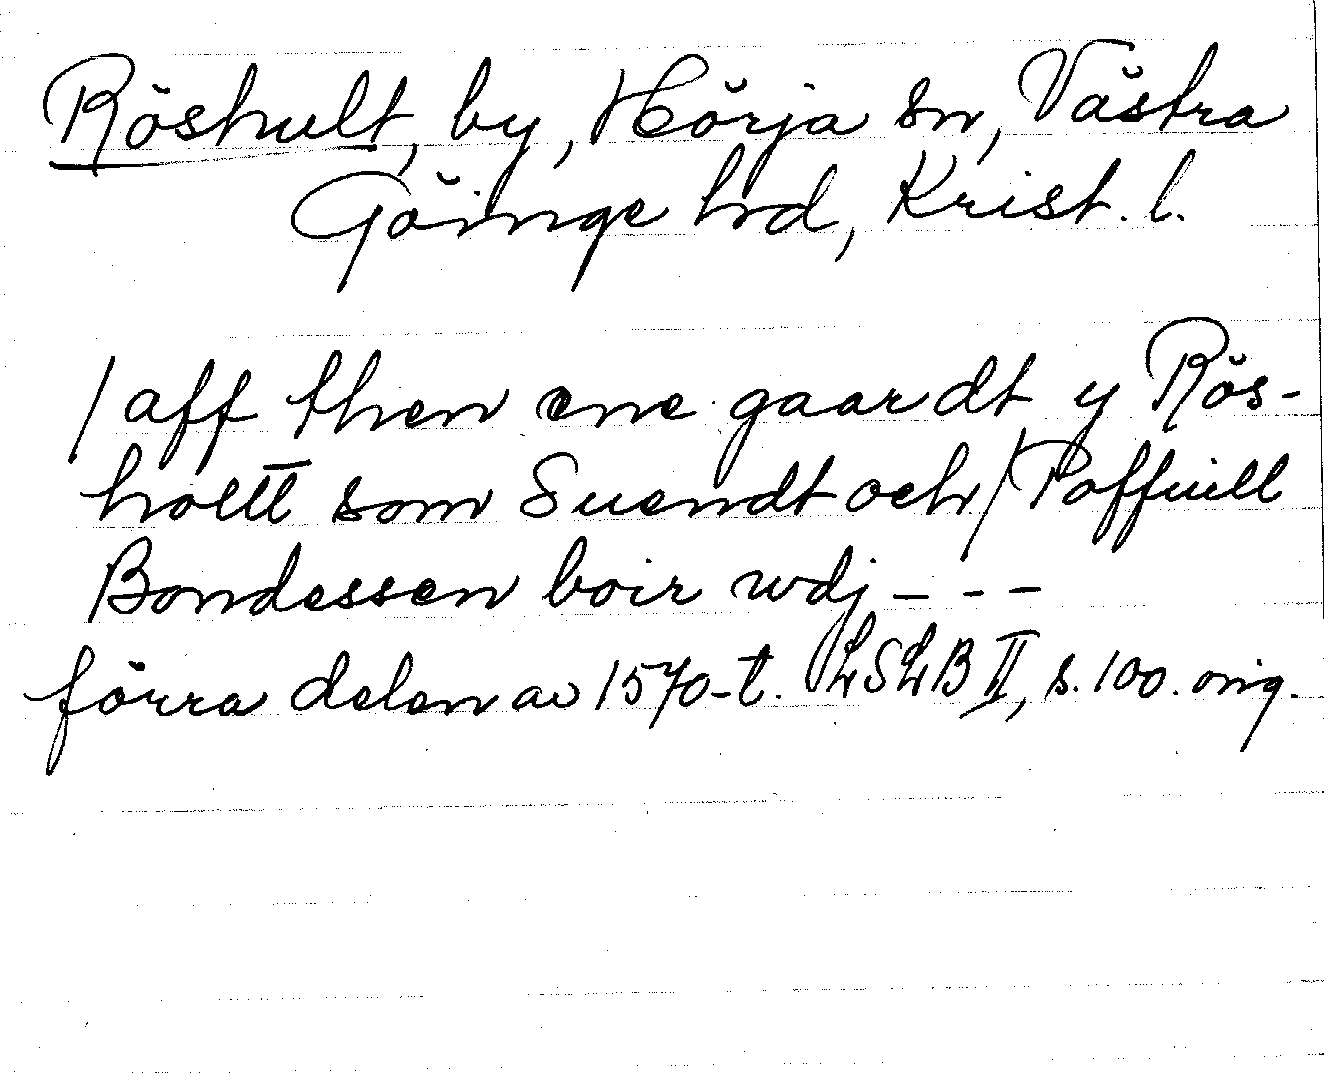 Röshult, by, Hörja sn, Västra
Göinge hd, Krist. l.
/ aff then ene gaardt y Rös-
holtt som Suendt och / Poffuill
Bondessen boir wdj _ - -
förra delen av 1570-t. LSLB II, s. 100. orig.